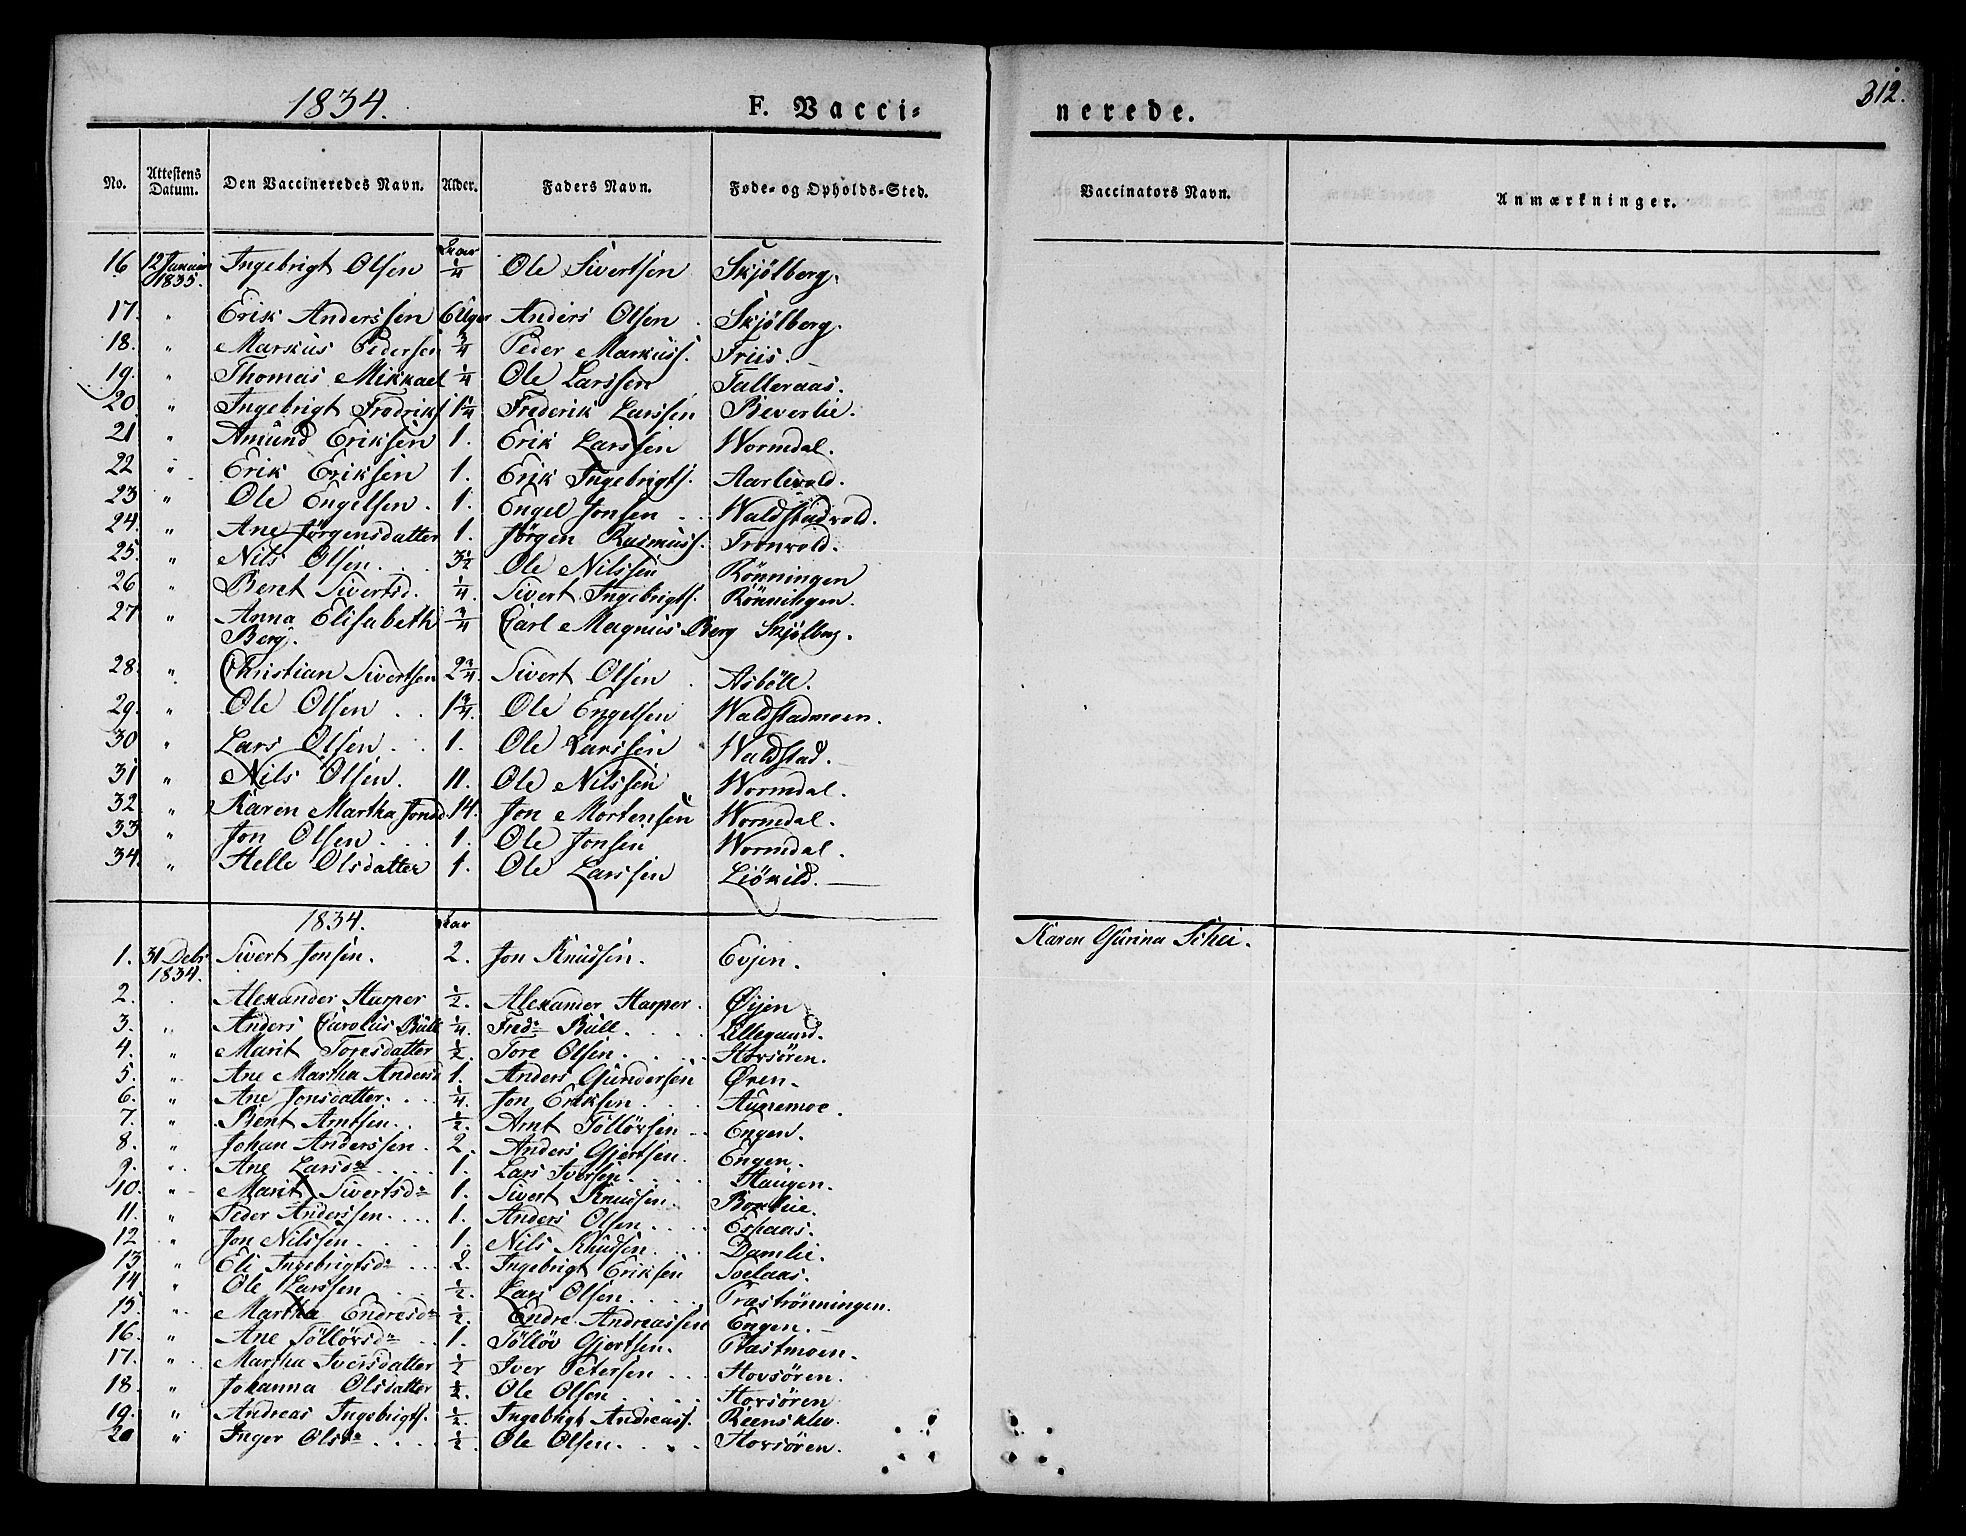 1834. F. Vacci=nerede. 312.
No. Attestens Datum. Den Vaccineredes Navn. Alder. Faders Navn. Føde- og Opholds-Sted. Vaccinators Navn. Anmærkninger.
16 12 Januar 1835. Ingebrigt Olsen 1/4 Ole Sivertsen Skjölberg.
17. " Erik Anderssen 6 Uger Anders Olsen Skjölberg.
18. " Markus Pedersen 3/4 Peder Markuss. Friis.
19. " Thomas Mikkael 1/4 Ole Larssen Talleraas.
20 " Ingebrigt Fredriks. 1 1/4 Frederik Larssen Beverlie.
21 " Amund Eriksen 1. Erik Larssen Wormdal.
22 " Erik Eriksen 1. Erik Ingebrigts. Aarlivold.
23 " Ole Engelsen. 1. Engel Jonsen Waldstadvold.
24. " Ane Jörgensdatter 1. Jörgen Rasmuss. Tronvold.
25. " Nils Olsen. 3 1/2 Ole Nilssen Rönningen
26 " Beret Sivertsd. 1/4. Sivert Ingebrigts. Rönningen.
27 " Anna Elisabeth Berg. 3/4 Carl Magnus Berg Skjölberg.
28. " Christian Sivertsen 2 3/4. Sivert Olsen Asböll.
29. " Ole Olsen 1 3/4. Ole Engelsen Waldstadmoen.
30 " Lars Olsen 1. Ole Larssen Waldstad.
31 " Nils Olsen. 11. Ole Nilssen Wormdal.
32 " Karen Martha Jonsd. 14. Jon Mortensen Wormdal.
33 " Jon Olsen 1. Ole Jonsen Wormdal.
34. " Helle Olsdatter 1. Ole Larssen Liökild.
1834. Aar
1. 31 Debr 1834. Sivert Jonsen. 2. Jon Knudsen. Evjen. Karen Gurina Schei.
2. Alexander Harper 1/2. Alexander Harper. Öijen
3. " Anders Carolus Bull 1/4. Fred. Bull. Lillegaard.
4. " Marit Toresdatter 1/2. Tore Olsen. Hovsören.
5. " Ane Martha Andersd 1. Anders Gundersen Ören.
6. " Ane Jonsdatter. 1/4. Jon Eriksen. Aunemoe.
7. " Bent Arntsen. 1/2. Arnt Töllövsen Engen.
8. " Johan Anderssen. 2. Anders Gjertsen. Engen.
9. " Ane Larsdr 1. Lars Iversen. Haugen.
10. " Marit Sivertsdr 1. Sivert Knudsen. Borlie.
11. " Peder Anderssen. 1. Anders Olsen Espaas.
12 " Jon Nilssen. 1. Nils Knudsen. Damlie.
13. " Eli Ingebrigtsdr 2. Ingebrigt Eriksen Soelaas.
14 " Ole Larssen 1/2. Lars Olsen. Træströnningen.
15. " Martha Endresdr 1/2. Endre Andreassen Engen.
16. " Ane Töllövsdr 1. Töllöv Gjertsen. Plastmoen.
17. " Martha Iversdatter 1/2 Iver Petersen Hovsören.
18. " Johanna Olsdatter 1/2. Ole Olsen Hovsören
19. " Andreas Ingebrigts. 1/2. Ingebrigt Andreass. Reensklev.
20 " Inger Olsdr 1/2. Ole Olsen. Hovsören.